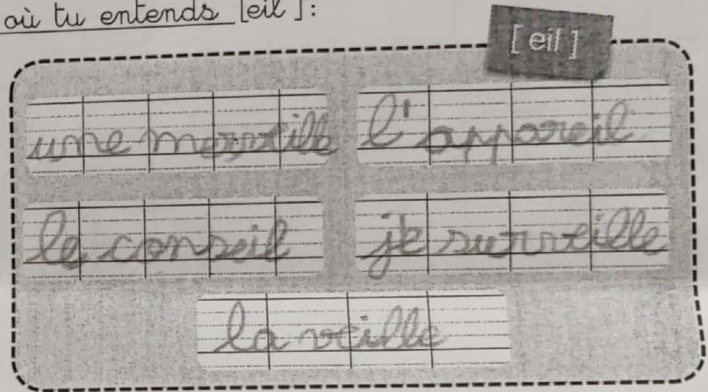 où tu entends [eil]:
[eil]
une merveille l'appareil
le conseil je surveille
la veille